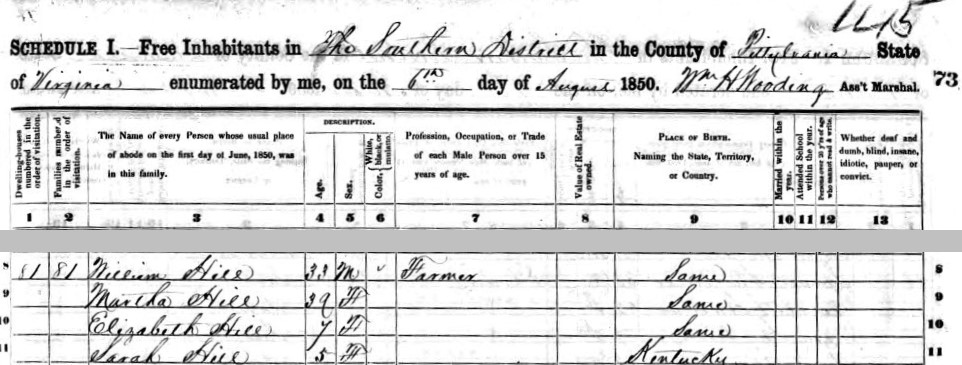 1245
SCHEDULE I.—Free Inhabitants in The Southern District in the County of Pittsylvania State
of Virginia enumerated by me, on the 6th day of August 1850. Wm H Wooding Ass't Marshal. 73
Dwelling-houses numbered in the order of visitation.
Families numbered in the order of visitation.
The Name of every Person whose usual place of abode on the first day of June, 1850, was in this family.
DESCRIPTION.
Age.
Sex.
Color, White, black, or mulatto.
Profession, Occupation, or Trade of each Male Person over 15 years of age.
Value of Real Estate owned.
PLACE OF BIRTH. Naming the State, Territory, or Country.
Married within the year.
Attended School within the year.
Persons over 20 y'rs of age who cannot read & write.
Whether deaf and dumb, blind, insane, idiotic, pauper, or convict.
1 2 3 4 5 6 7 8 9 10 11 12 13
8 81 81 William Hill 33 M " Farmer Same 8
9 Martha Hill 39 F Same 9
10 Elizabeth Hill 7 F Same 10
11 Sarah Hill 5 F Kentucky 11